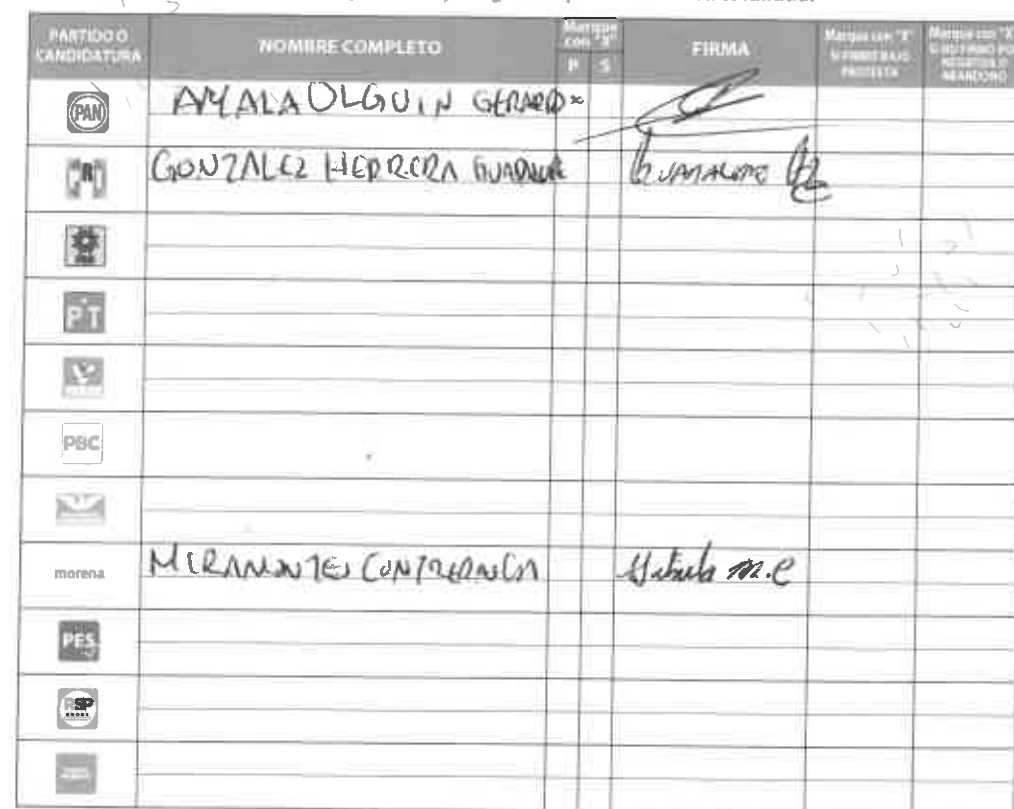 PARTIDO O CANDIDATURA
NOMBRE COMPLETO
Marque con "X"
P S
FIRMA
Marque con "X" SI FIRMÓ BAJO PROTESTA
Marque con "X" SI NO FIRMÓ POR NEGATIVA O ABANDONO
PAN
AYALA OLGUIN GERARDO x
R
GONZALEZ HERRERA GUADALUPE
PT
PBC
morena
MIRAMONTES
m.c
PES
RSP